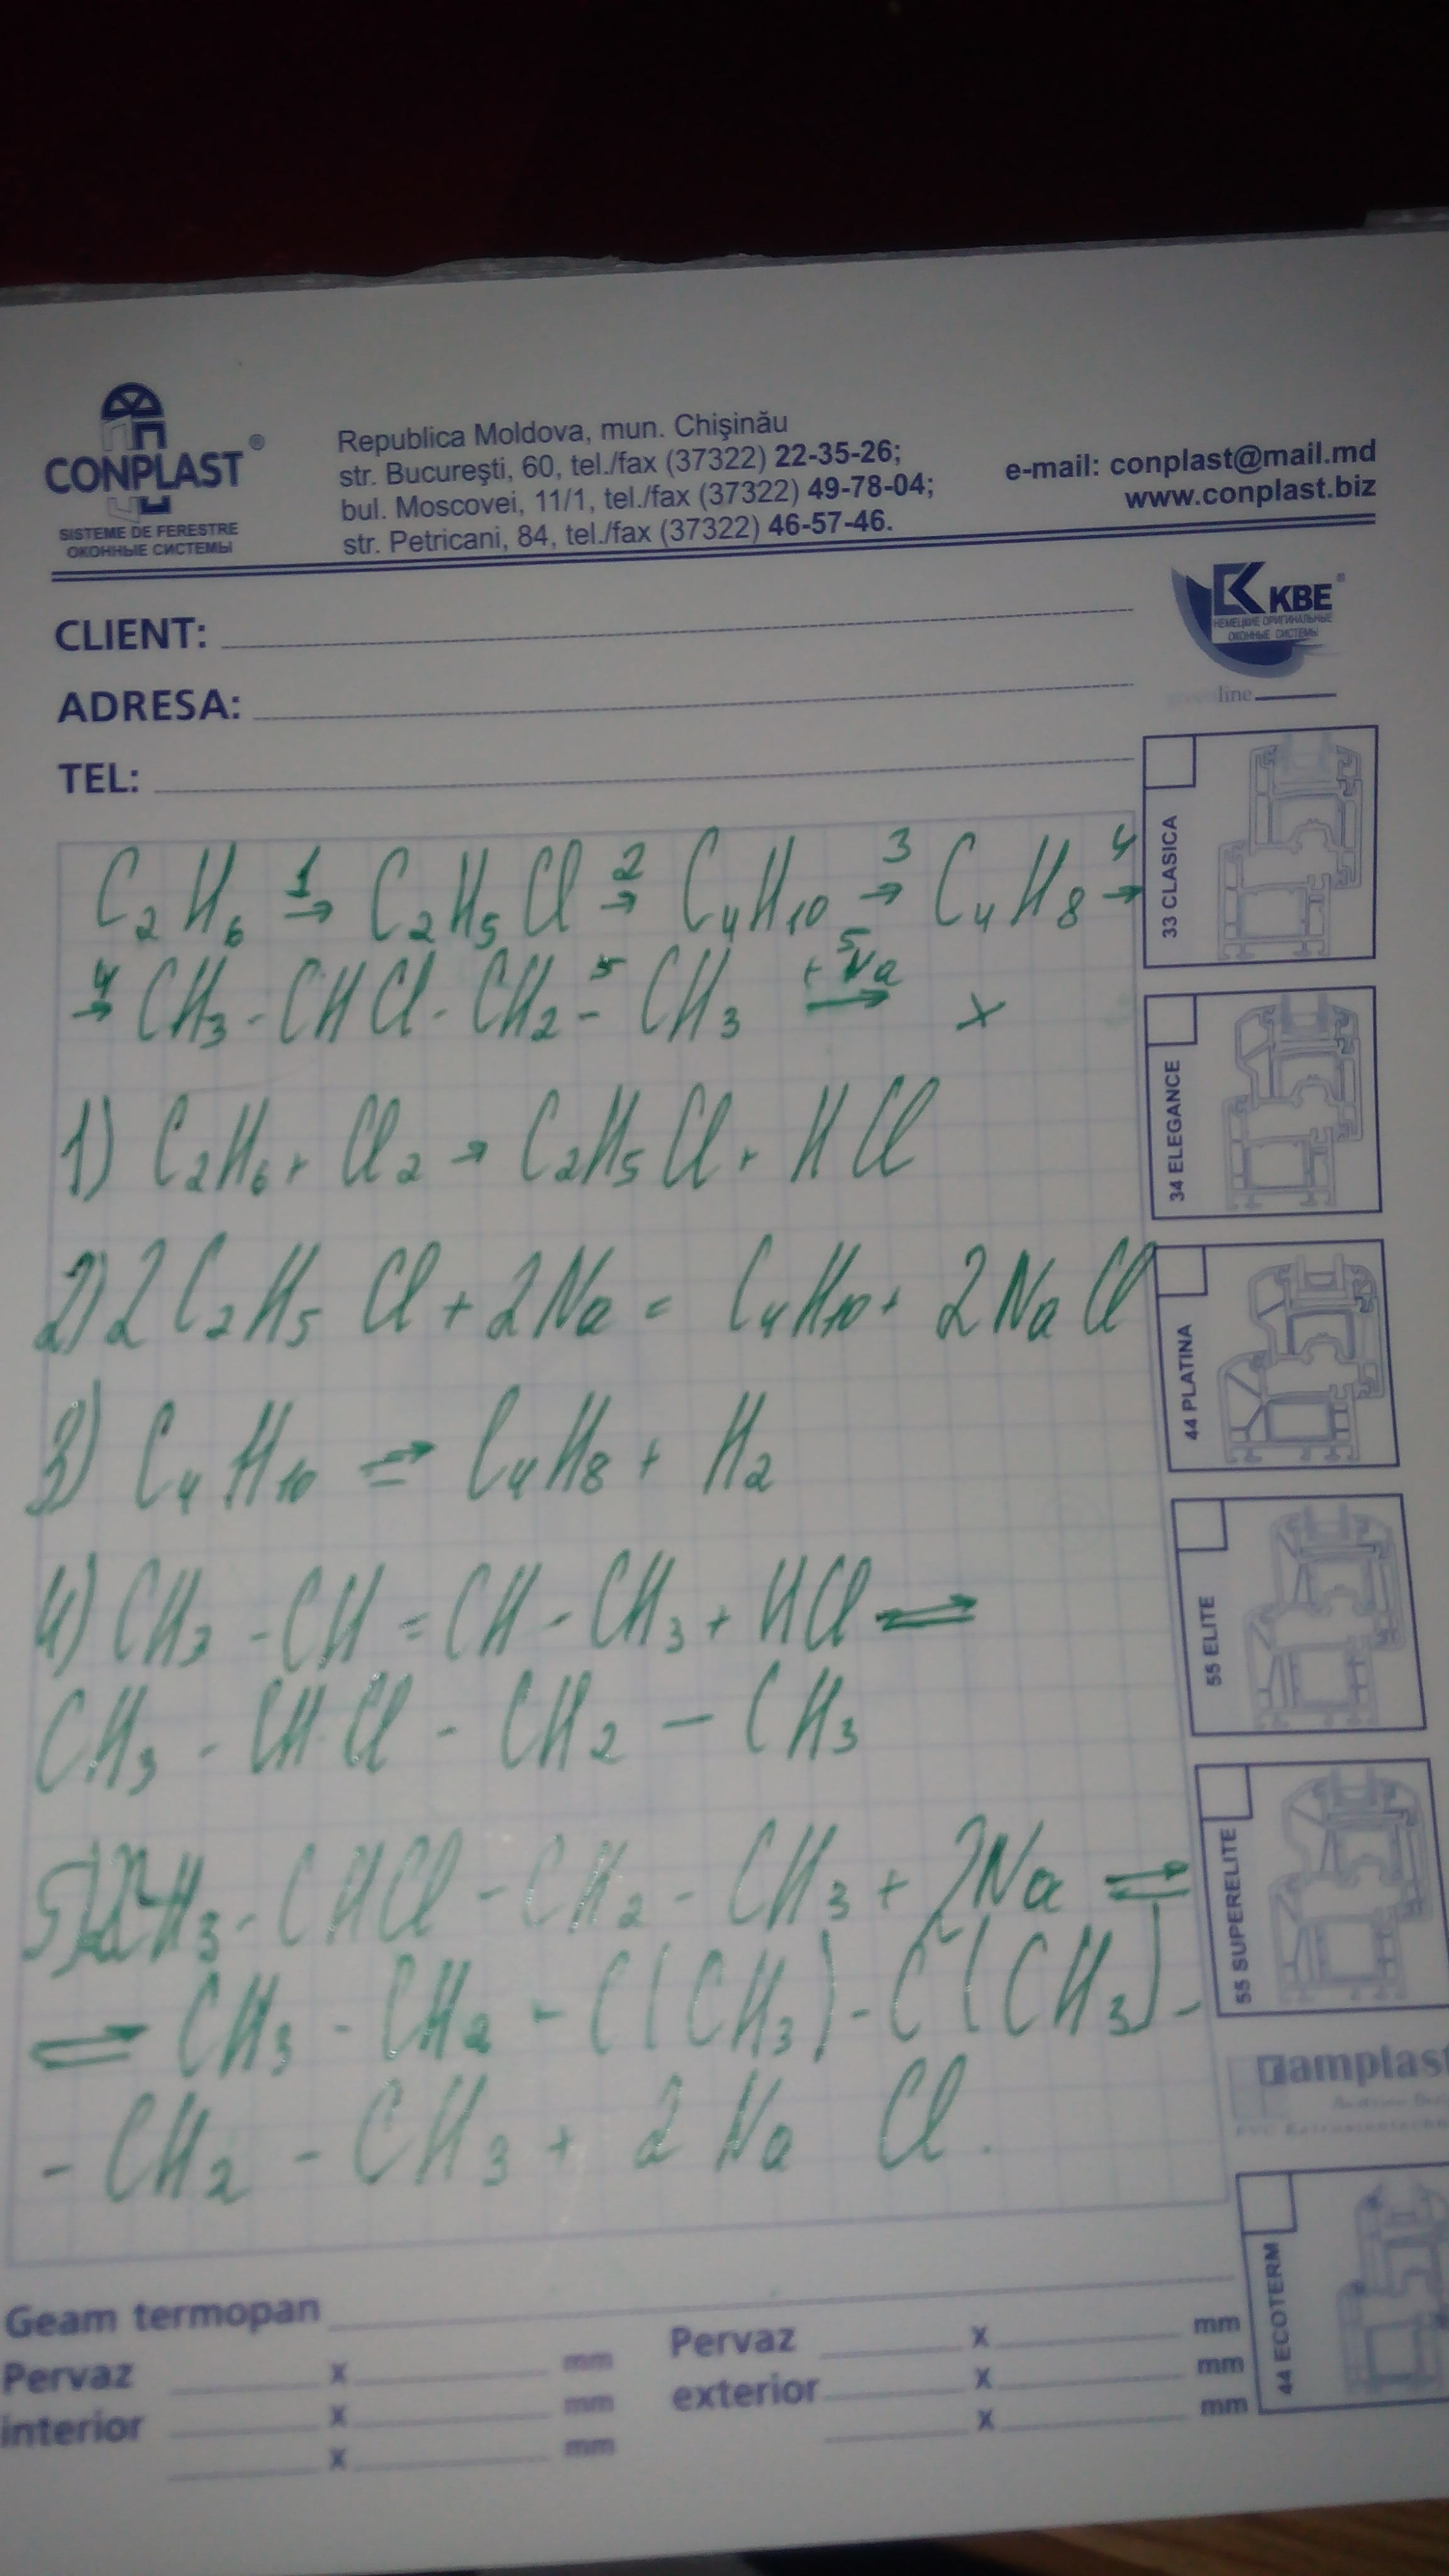 CONPLAST ®
SISTEME DE FERESTRE
ОКОННЫЕ СИСТЕМЫ
Republica Moldova, mun. Chişinău
str. Bucureşti, 60, tel./fax (37322) 22-35-26;
bul. Moscovei, 11/1, tel./fax (37322) 49-78-04;
str. Petricani, 84, tel./fax (37322) 46-57-46.
e-mail: conplast@mail.md
www.conplast.biz
KBE ®
НЕМЕЦКИЕ ОРИГИНАЛЬНЫЕ
ОКОННЫЕ СИСТЕМЫ
line
CLIENT:
ADRESA:
TEL:
C₂H₆ →¹ C₂H₅Cl →² C₄H₁₀ →³ C₄H₈ →⁴
→⁴ CH₃ - CHCl - CH₂ -⁵ CH₃ →⁵ + Na x
1) C₂H₆ + Cl₂ → C₂H₅Cl + HCl
2) 2C₂H₅Cl + 2Na = C₄H₁₀ + 2NaCl
3) C₄H₁₀ ⇒ C₄H₈ + H₂
4) CH₃ - CH = CH - CH₃ + HCl ⇒
CH₃ - CHCl - CH₂ - CH₃
5) 2CH₃ - CHCl - CH₂ - CH₃ + 2Na ⇒
⇒ CH₃ - CH₂ - C(CH₃) - C(CH₃) -
- CH₂ - CH₃ + 2NaCl.
33 CLASICA
34 ELEGANCE
44 PLATINA
55 ELITE
55 SUPERELITE
amplast
44 ECOTERM
Geam termopan
Pervaz x mm
interior x mm
x mm
Pervaz x mm
exterior x mm
x mm